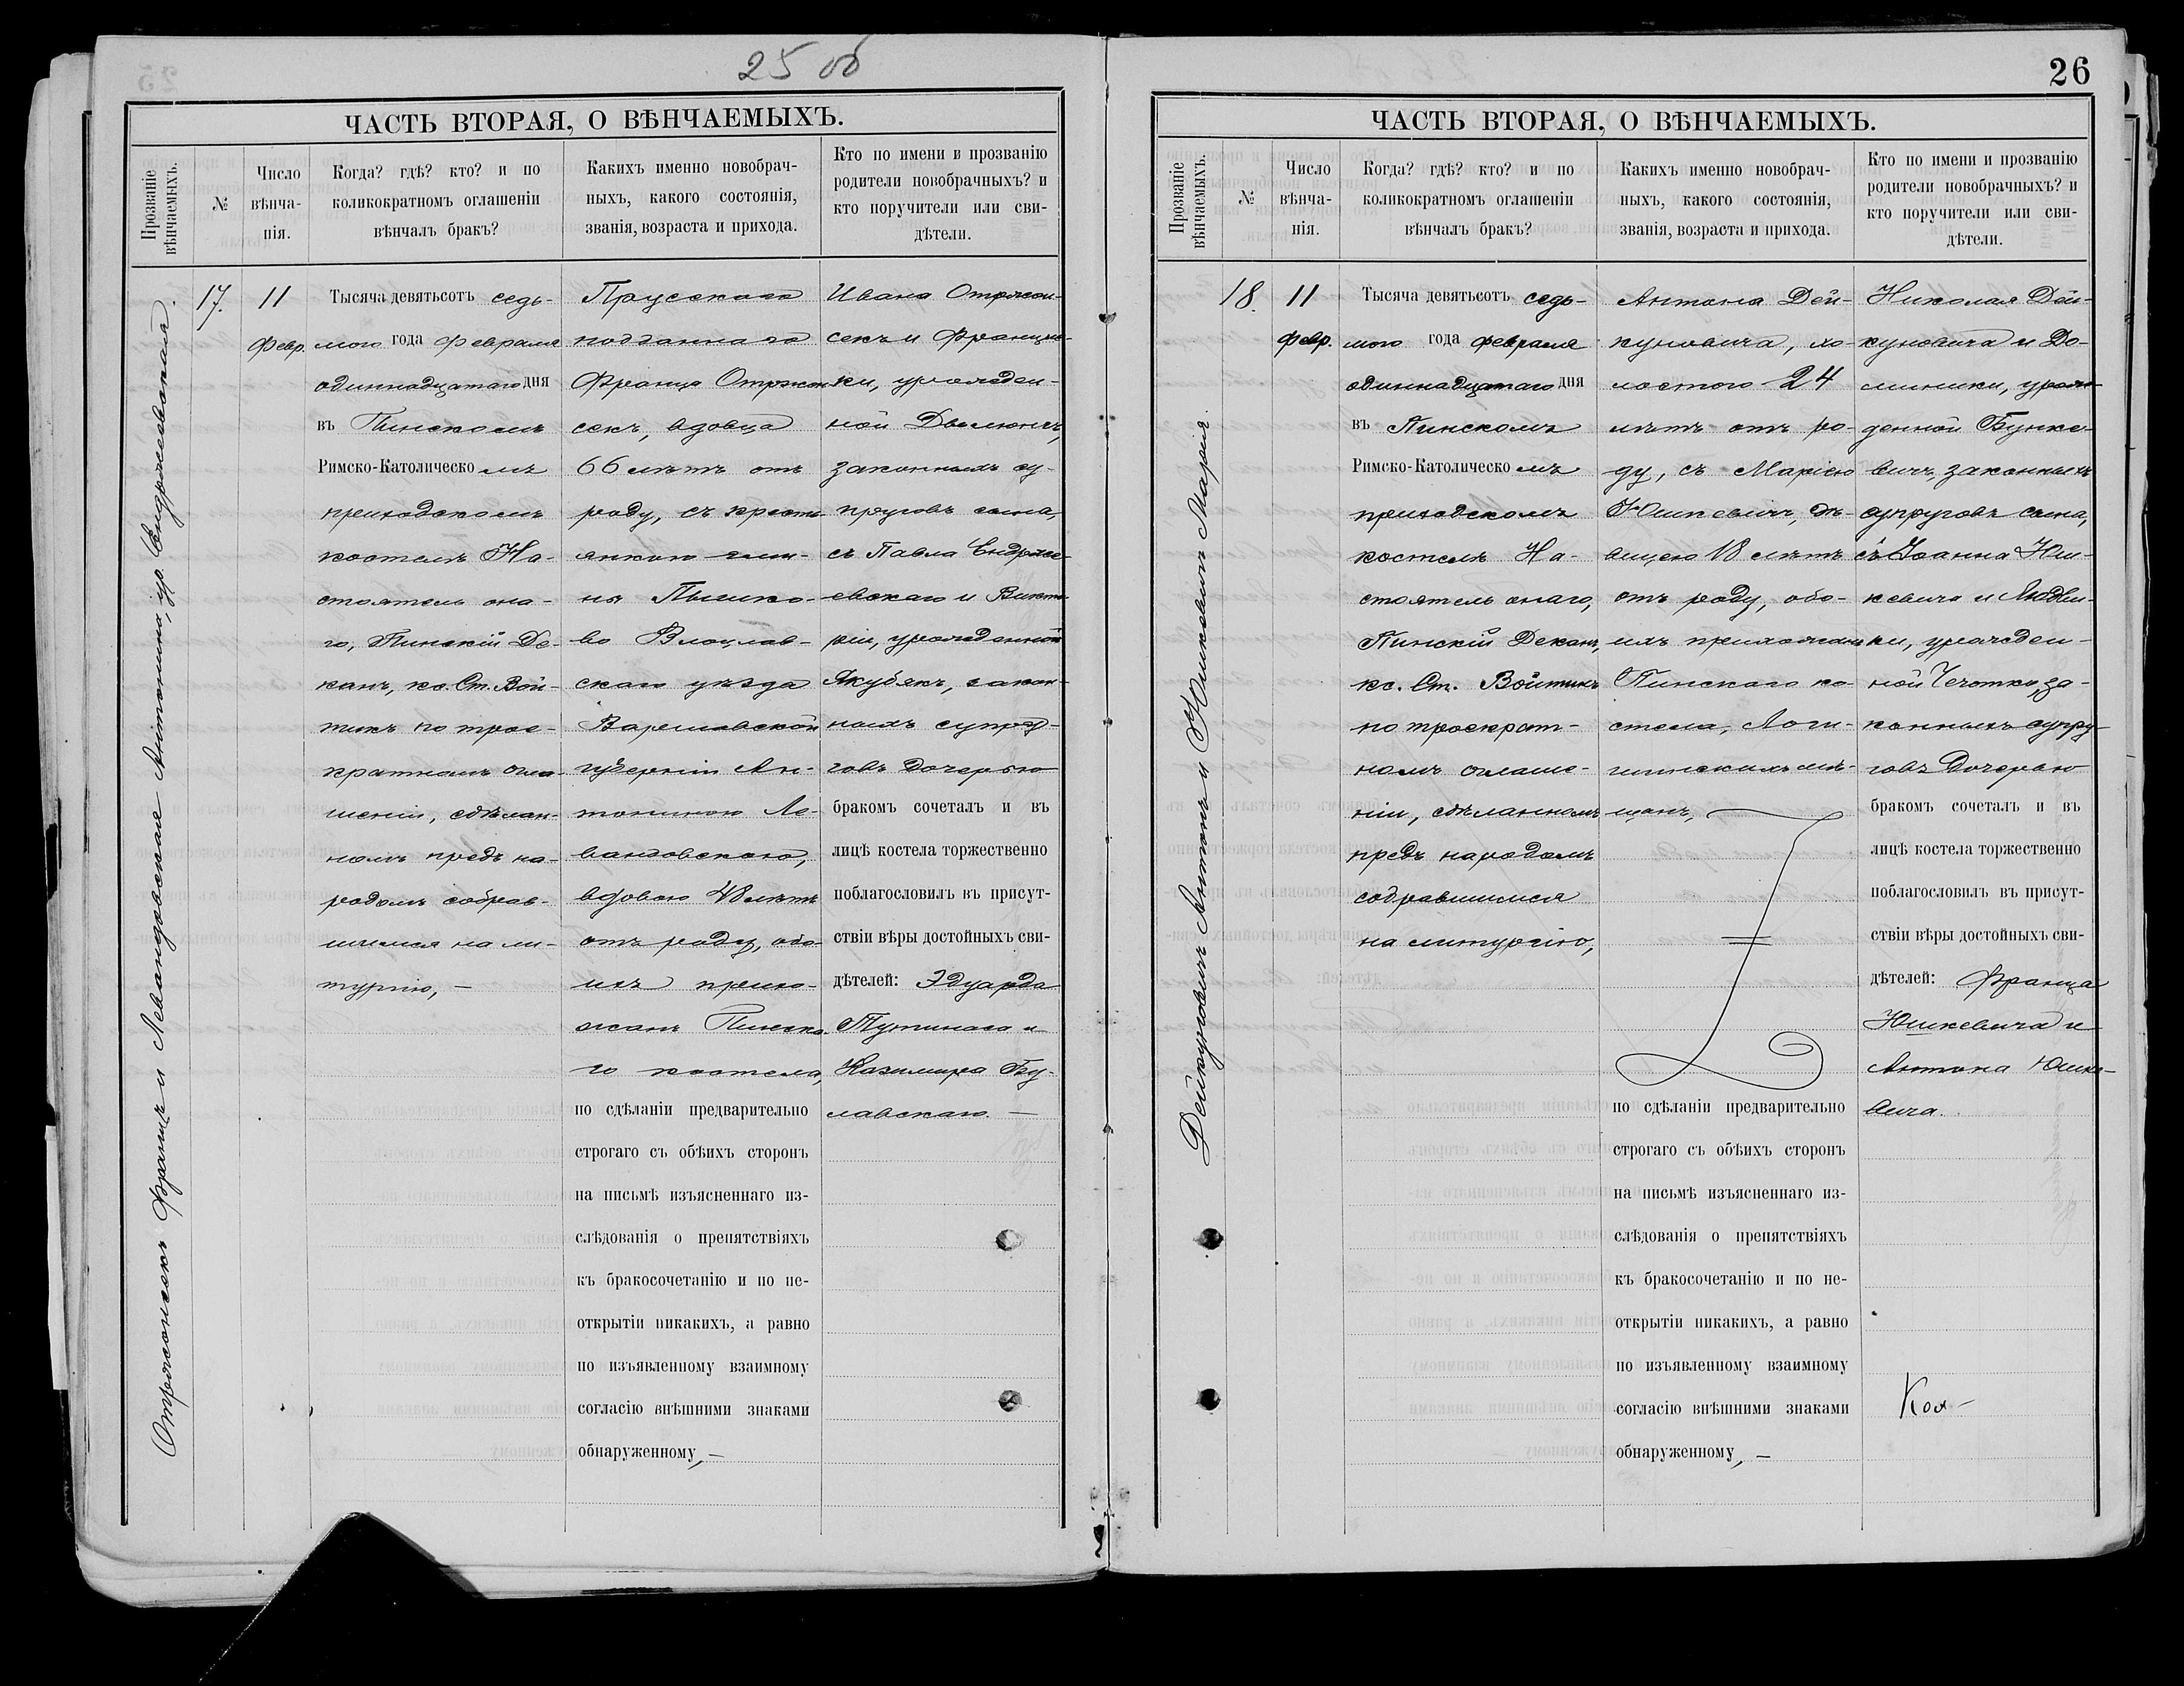 25 об
ЧАСТЬ ВТОРАЯ, О ВѢНЧАЕМЫХЪ.
Прозваніе вѣнчаемыхъ.
№
Число вѣнча-нія.
Когда? гдѣ? кто? и по
коликократномъ оглашеніи
вѣнчалъ бракъ?
Какихъ именно новобрач-
ныхъ, какого состоянія,
званія, возраста и прихода.
Кто по имени и прозванію
родители новобрачныхъ? и
кто поручители или сви-
дѣтели.
Отржонсекъ Францъ и Левандовская Антонина, ур. Ендржеевская.
17.
11
Февр.
Тысяча девятьсотъ седь-
мого года Февраля
одиннадцатаго дня
въ Пинскомъ
Римско-Католическомъ
приходскомъ
костелѣ На-
стоятель она-
го, Пинскій Де-
канъ, кс. Ст. Вой-
тикъ по трое-
кратномъ огла-
шеніи, сдѣлан-
номъ предъ на-
родомъ собрав-
шимся на ли-
тургію, —
Прусскаго
подданнаго
Франца Отржон-
секъ, вдовца
66 лѣтъ отъ
роду, съ кресть-
янкою гми-
ны Пышко-
во Влоцлав-
скаго уѣзда
Варшавской
губерніи Ан-
тониною Ле-
вандовскою,
вдовою 48 лѣтъ
отъ роду, обо-
ихъ прихо-
жанъ Пинска-
го костела,
по сдѣланіи предварительно
строгаго съ обѣихъ сторонъ
на письмѣ изъясненнаго из-
слѣдованія о препятствіяхъ
къ бракосочетанію и по не-
открытіи никакихъ, а равно
по изъявленному взаимному
согласію внѣшними знаками
обнаруженному, —
Ивана Отржон-
секъ и Францис-
ки, урожден-
ной
законныхъ су-
пруговъ сына,
съ Павла Ендрже-
евскаго и Викто-
ріи, урожденной
Якубякъ, закон-
ныхъ супру-
говъ дочерью
бракомъ сочеталъ и въ
лицѣ костела торжественно
поблагословилъ въ присут-
ствіи вѣры достойныхъ сви-
дѣтелей: Эдуарда
Тутинаса и
Казимира Бу-
лавскаго. —
26
ЧАСТЬ ВТОРАЯ, О ВѢНЧАЕМЫХЪ.
Прозваніе вѣнчаемыхъ.
№
Число вѣнча-нія.
Когда? гдѣ? кто? и по
коликократномъ оглашеніи
вѣнчалъ бракъ?
Какихъ именно новобрач-
ныхъ, какого состоянія,
званія, возраста и прихода.
Кто по имени и прозванію
родители новобрачныхъ? и
кто поручители или сви-
дѣтели.
Дейкуновичъ Антонъ и Юшкевичъ Марія.
18.
11
февр.
Тысяча девятьсотъ седь-
мого года февраля
одиннадцатаго дня
въ Пинскомъ
Римско-Католическомъ
приходскомъ
костелѣ На-
стоятель онаго,
Пинскій Деканъ,
кс. Ст. Войтикъ
по троекрат-
номъ оглаше-
ніи, сдѣланномъ
предъ народомъ
собравшимся
на литургію,
Антона Дей-
куновича, хо-
лостого 24
лѣтъ отъ ро-
ду, съ Маріею
Юшкевичъ, дѣ-
вицею 18 лѣтъ
отъ роду, обо-
ихъ прихожанъ
Пинскаго ко-
стела, Логи-
шинскихъ мѣ-
щанъ,
по сдѣланіи предварительно
строгаго съ обѣихъ сторонъ
на письмѣ изъясненнаго из-
слѣдованія о препятствіяхъ
къ бракосочетанію и по не-
открытіи никакихъ, а равно
по изъявленному взаимному
согласію внѣшними знаками
обнаруженному, —
Николая Дей-
куновича и До-
миники, урож-
денной Бунке-
вичъ, законныхъ
супруговъ сына,
съ Іоанна Юш-
кевича и Людви-
ки, урожден-
ной Чечотко, за-
конныхъ супру-
говъ дочерью
бракомъ сочеталъ и въ
лицѣ костела торжественно
поблагословилъ въ присут-
ствіи вѣры достойныхъ сви-
дѣтелей: Франца
Юшкевича и
Антона Юшке-
вича.